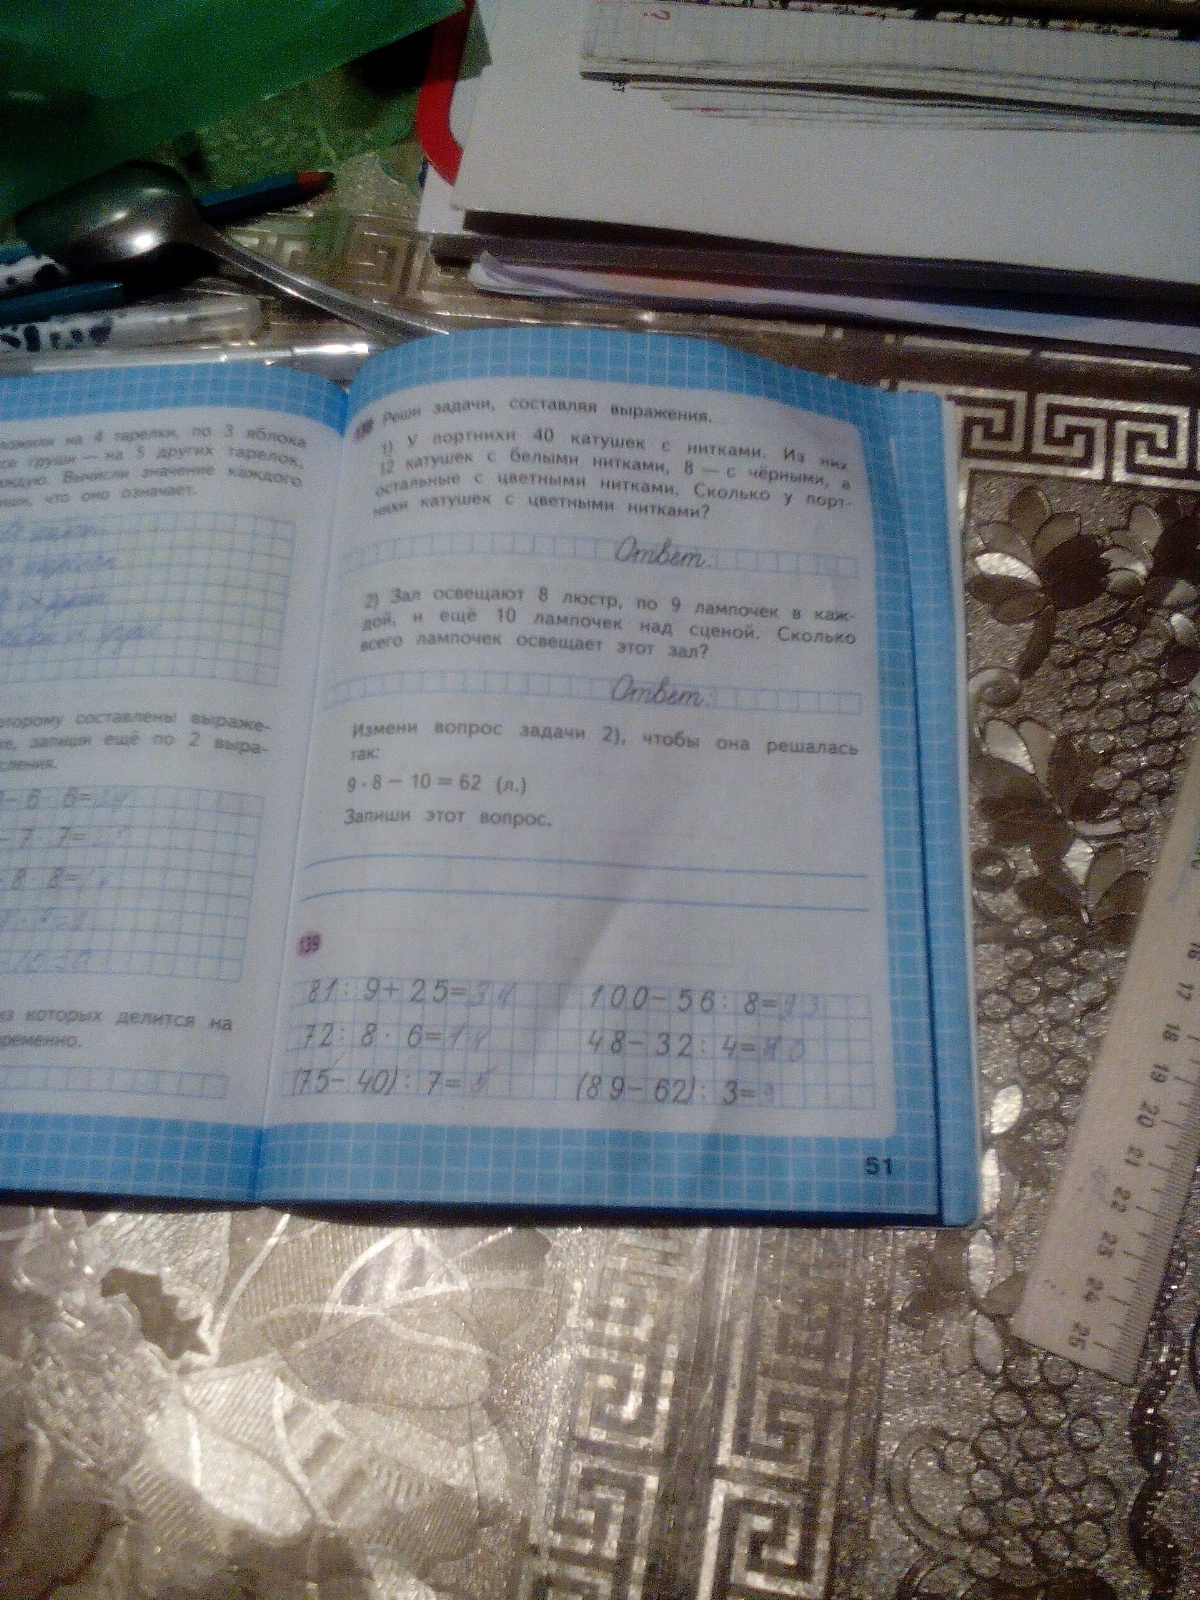 ложили на 4 тарелки, по 3 яблока
се груши — на 5 других тарелок,
аждую. Вычисли значение каждого
иши, что оно означает.
оторому составлены выраже-
ке, запиши ещё по 2 выра-
сления.
- 6 · 6=
- 7 7=
· 8 8=
из которых делится на
ременно.
138 Реши задачи, составляя выражения.
1) У портнихи 40 катушек с нитками. Из них
12 катушек с белыми нитками, 8 — с чёрными, а
остальные с цветными нитками. Сколько у порт-
нихи катушек с цветными нитками?
Ответ:
2) Зал освещают 8 люстр, по 9 лампочек в каж-
дой, и ещё 10 лампочек над сценой. Сколько
всего лампочек освещает этот зал?
Ответ:
Измени вопрос задачи 2), чтобы она решалась
так:
9 · 8 − 10 = 62 (л.)
Запиши этот вопрос.
139
81 : 9 + 25 = 34 100 − 56 : 8 = 93
72 : 8 · 6 = 48 − 32 : 4 = 40
(75 − 40) : 7 = 5 (89 − 62) : 3 = 9
51
16 17 18 19 20 21 22 23 24 25